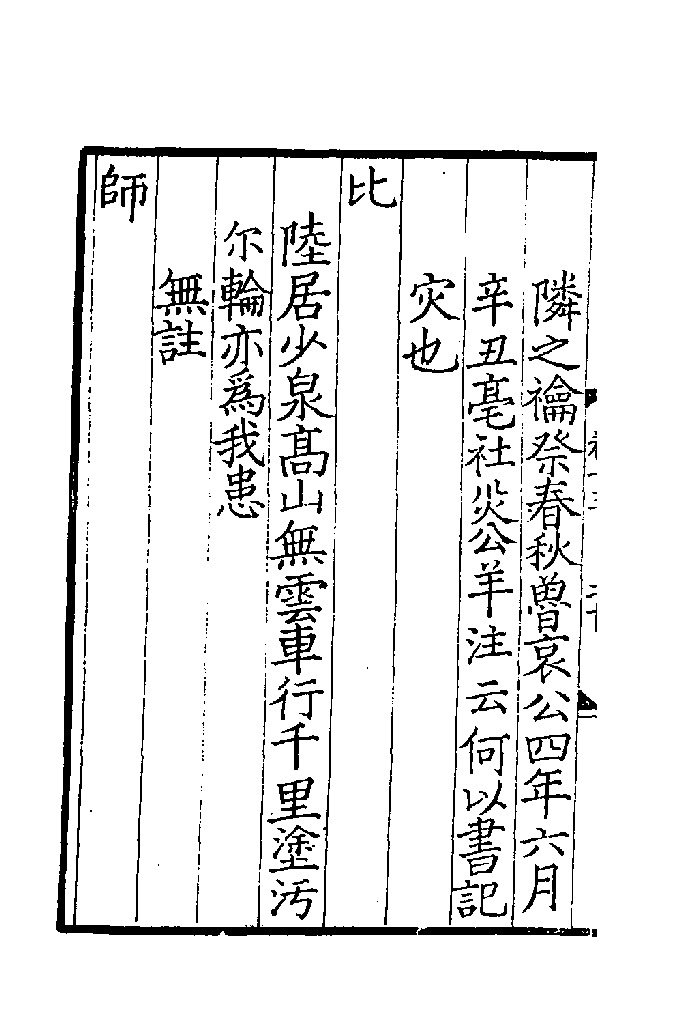 隣之禴祭春秋魯哀公四年六月
辛丑亳社災公羊注云何以書記
灾也
比
陸居少泉髙山無雲車行千里塗汚
尔輪亦爲我患
無註
師